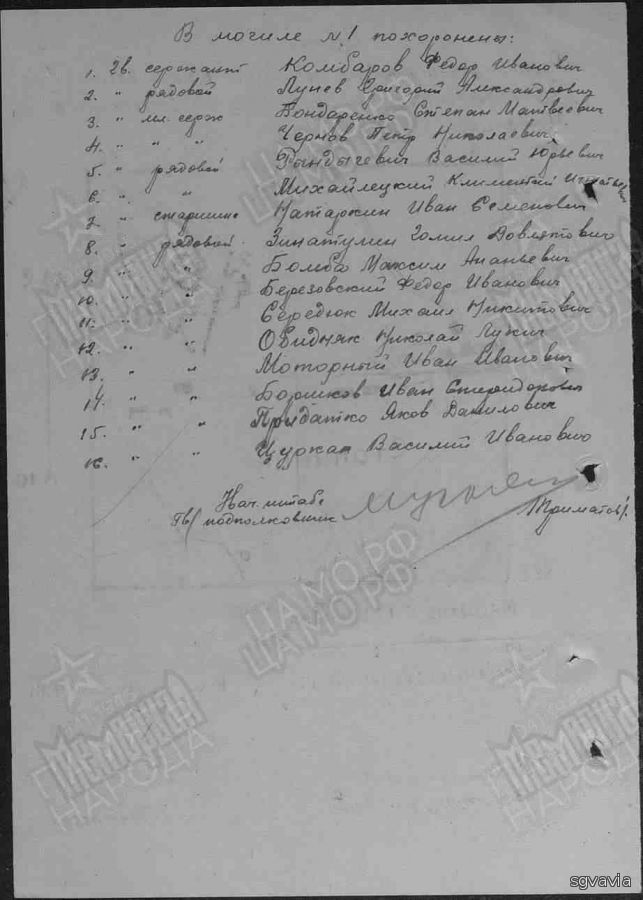 В могиле №1 похоронены:
1. Гв. сержант Комбаров Федор Иванович
2. " рядовой Лунев Григорий Александрович
3. " мл. серж Бондаренко Степан Матвеевич
4. " " " Чернов Петр Николаевич
5. " рядовой Гындычевич Василий Юрьевич
6. " " Михайлецкий Климентий
7. " старшина Натаркин Иван Семенович
8. " рядовой Зинатулин
9. " " Бомба Максим Ананьевич
10. " " Березовский Федор Иванович
11. " " Середюк Михаил Никитович
12. " " Николай Лукич
13. " " Моторный Иван Иванович
14. " " Боршков Иван Спиридорович
15. " " Придатко Яков Данилович
16. " " Цуркан Василий Иванович
Нач. штаба
Гв/ подполковник /Триматов/
ЦА МО РФ
ЦА МО РФ
ПАМЯТЬ НАРОДА
sgvavia